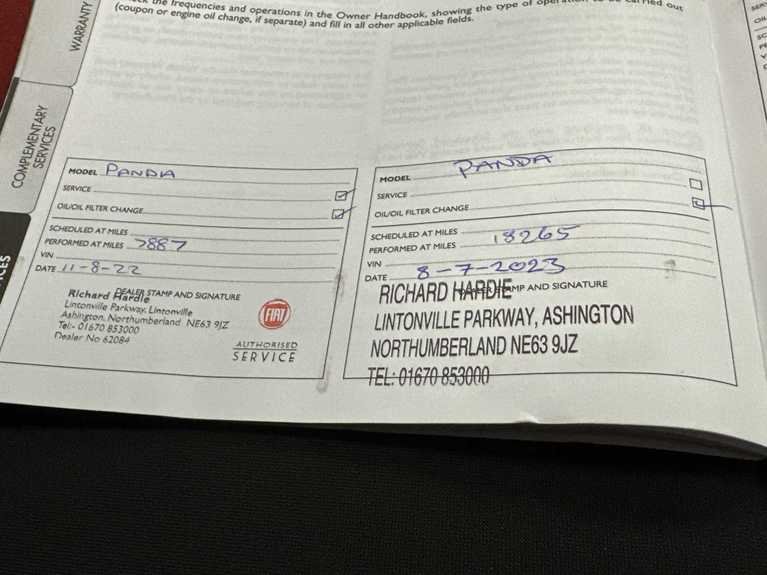 the frequencies and operations in the Owner Handbook, showing the type of
(coupon or engine oil change, if separate) and fill in all other applicable fields.
out
WARRANTY
COMPLEMENTARY
SERVICES
MODEL PANDA
SERVICE
OIL/OIL FILTER CHANGE
SCHEDULED AT MILES
PERFORMED AT MILES 7887
VIN
DATE 11-8-22
DEALER STAMP AND SIGNATURE
Richard Hardie
Lintonville Parkway, Lintonville
Ashington, Northumberland NE63 9JZ
Tel:- 01670 853000
Dealer No 62084
FIAT
AUTHORISED
SERVICE
MODEL PANDA
SERVICE
OIL/OIL FILTER CHANGE
SCHEDULED AT MILES
PERFORMED AT MILES 18265
VIN
DATE 8-7-2023
RICHARD HARDIE
LINTONVILLE PARKWAY, ASHINGTON
NORTHUMBERLAND NE63 9JZ
TEL: 01670 853000
AND SIGNATURE